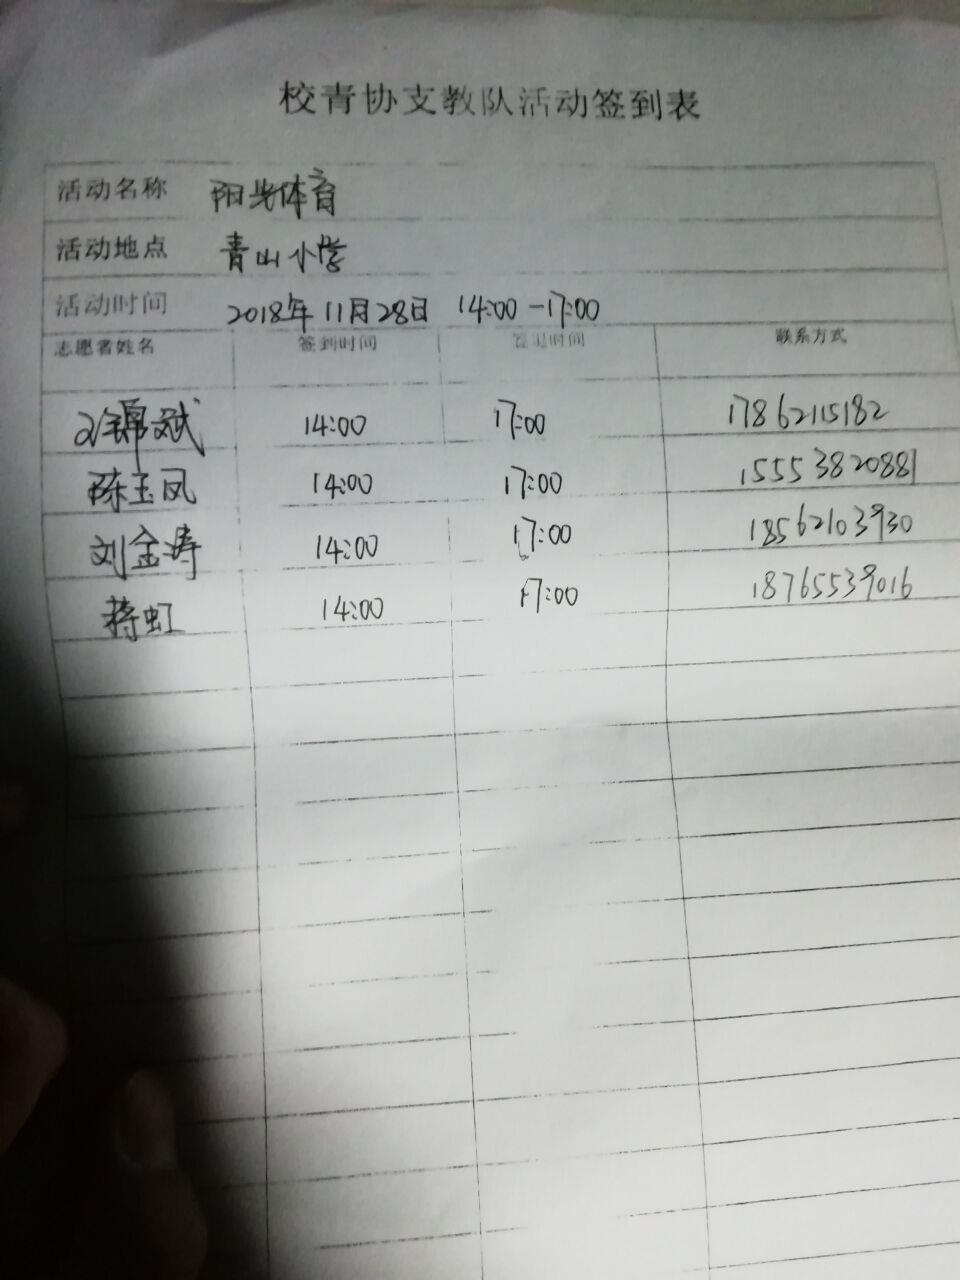 校青协支教队活动签到表
活动名称 阳光体育
活动地点 青山小学
活动时间 2018年11月28日 14:00-17:00
志愿者姓名 签到时间 签退时间 联系方式
锦斌 14:00 17:00 17862115182
陈玉凤 14:00 17:00 15553820881
刘金涛 14:00 17:00 18562103930
蒋虹 14:00 17:00 18765539016